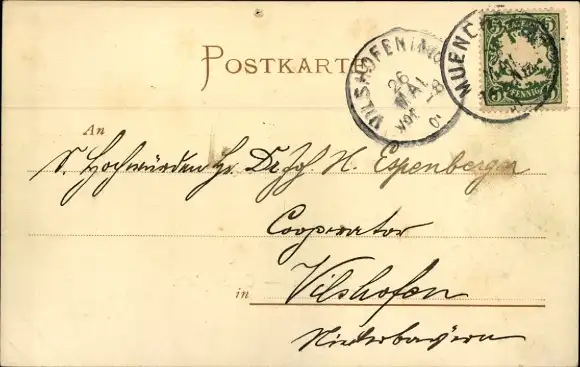 POSTKARTE
VILSHOFEN
26
MAI
MUENCH
5 5
5 PFENNIG 5
An
S. Hochwürden Hr. Dr. Joh. N. Espenberger
Cooperator
in Vilshofen
Niederbayern